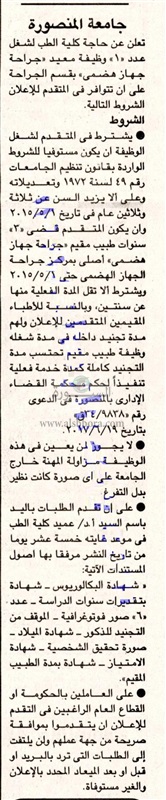 جامعة المنصورة
تعلن عن حاجة كلية الطب لشغل
عدد «١» وظيفة معيد «جراحة
جهاز هضمى» بقسم الجراحة
على ان تتوافر فى المتقدم للإعلان
الشروط التالية.
الشروط
● يشترط فى المتقدم لشغل
الوظيفة ان يكون مستوفيا للشروط
الواردة بقانون تنظيم الجامعات
رقم ٤٩ لسنة ١٩٧٢ وتعديلاته
وعلى ألا يزيد السن عن ثلاثة
وثلاثين عام فى تاريخ ٢٠١٥/٥/١
وان يكون المتقدم قضى «٣»
سنوات طبيب مقيم «جراحة جهاز
هضمى» اصلى بمركز جراحة
الجهاز الهضمى حتى ٢٠١٥/٥/١
ويشترط الا تقل المدة الفعلية منها
عن سنتين، وبالنسبة للأطباء
المقيمين المتقدمين للإعلان ولهم
مدة تجنيد داخله فى مدة شغله
وظيفة طبيب مقيم تحتسب مدة
التجنيد كاملة كمدة خدمة فعلية
تنفيذا لحكم محكمة القضاء
الإدارى بالمنصورة فى الدعوى
رقم «٩٨٢٨/٣٤ق»
بتاريخ ٢٠١٧/٦/١٩
● لا يجوز لمن يعين فى هذه
الوظيفة مزاولة المهنة خارج
الجامعة على اى صورة كانت نظير
بدل التفرغ
● على ان تقدم الطلبات باليد
باسم السيد أ.د/ عميد كلية الطب
فى موعد غايته خمسة عشر يوما
من تاريخ النشر مرفقا بها اصول
المستندات الآتية:
« شهادة البكالوريوس ــ شهادة
بتقديرات سنوات الدراسة ــ عدد
«٦» صور فوتوغرافية ــ الموقف من
التجنيد للذكور ــ شهادة الميلاد ــ
صورة تحقيق الشخصية ــ شهادة
الامتياز ــ شهادة بمدة الطبيب
المقيم»
● على العاملين بالحكومة او
القطاع العام الراغبين فى التقدم
للإعلان ان يتقدموا بموافقة
صريحة من جهة عملهم ولن يلتفت
إلى الطلبات التى ترد بالبريد او
قبل او بعد الميعاد المحدد بالإعلان
والغير مستوفاة.